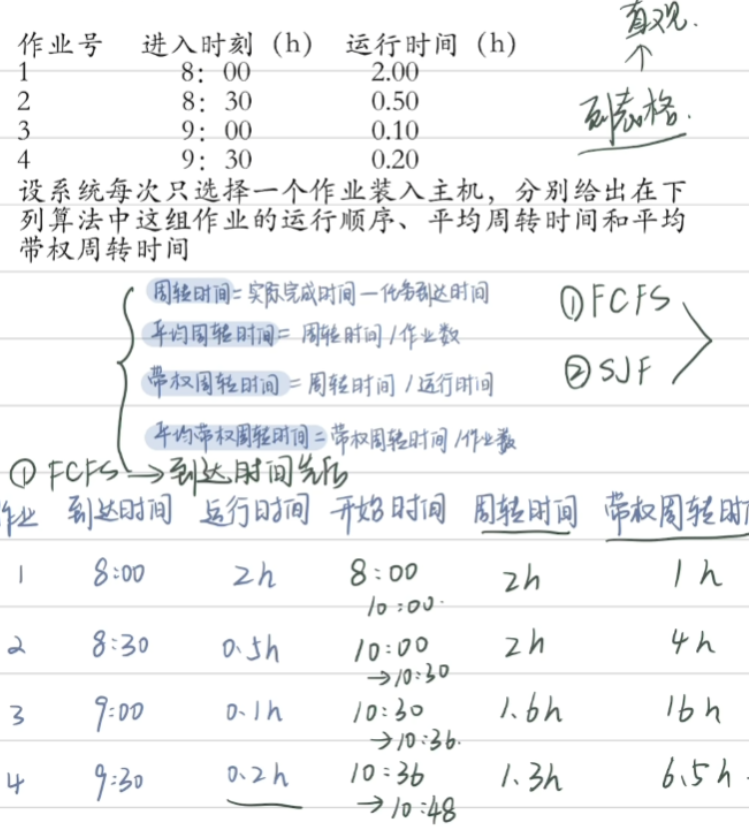 直观.
↑
列表格.
作业号 进入时刻（h） 运行时间（h）
1 8：00 2.00
2 8：30 0.50
3 9：00 0.10
4 9：30 0.20
设系统每次只选择一个作业装入主机，分别给出在下
列算法中这组作业的运行顺序、平均周转时间和平均
带权周转时间
周转时间=实际完成时间－任务到达时间
平均周转时间= 周转时间/作业数
带权周转时间=周转时间/运行时间
平均带权周转时间=带权周转时间/作业数
①FCFS
②SJF
① FCFS→到达时间先后
作业 到达时间 运行时间 开始时间 周转时间 带权周转时间
1 8:00 2h 8:00 2h 1h
10:00.
2 8:30 0.5h 10:00 2h 4h
→10:30
3 9:00 0.1h 10:30 1.6h 16h
→10:36.
4 9:30 0.2h 10:36 1.3h 6.5h
→10:48